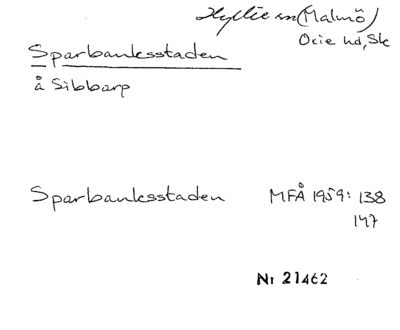 Hyllie sn (Malmö)
Oxie hd, Sk
Sparbanksstaden
å Sibbarp
Sparbanksstaden MFÅ 1959: 138
147
Nr 21462